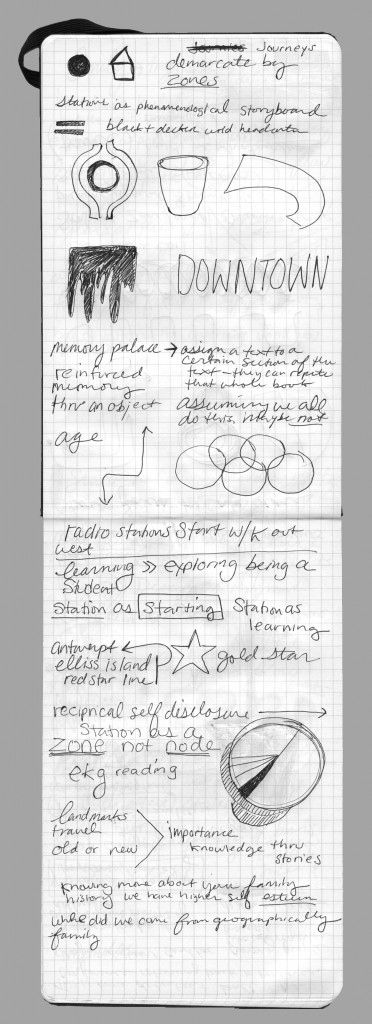 Journeys Journeys
demarcate by
zones
stations as phenomenological storyboard
black + decker world
DOWNTOWN
memory palace → assign a text to a
certain section of the
reinforced text - they can repeate
memory that whole book
thru an object assuming we all
do this, maybe not
age
radio stations start w/k out
west
learning >> exploring being a
student
Station as Starting Station as
learning
antwerpt
elliss island gold star
red star line
reciprical self disclosure
Station as a
zone not node
ekg reading
landmarks
travel importance
old or new knowledge thru
stories
knowing more about your family
history we have higher self esteem
did we come from geographically
family